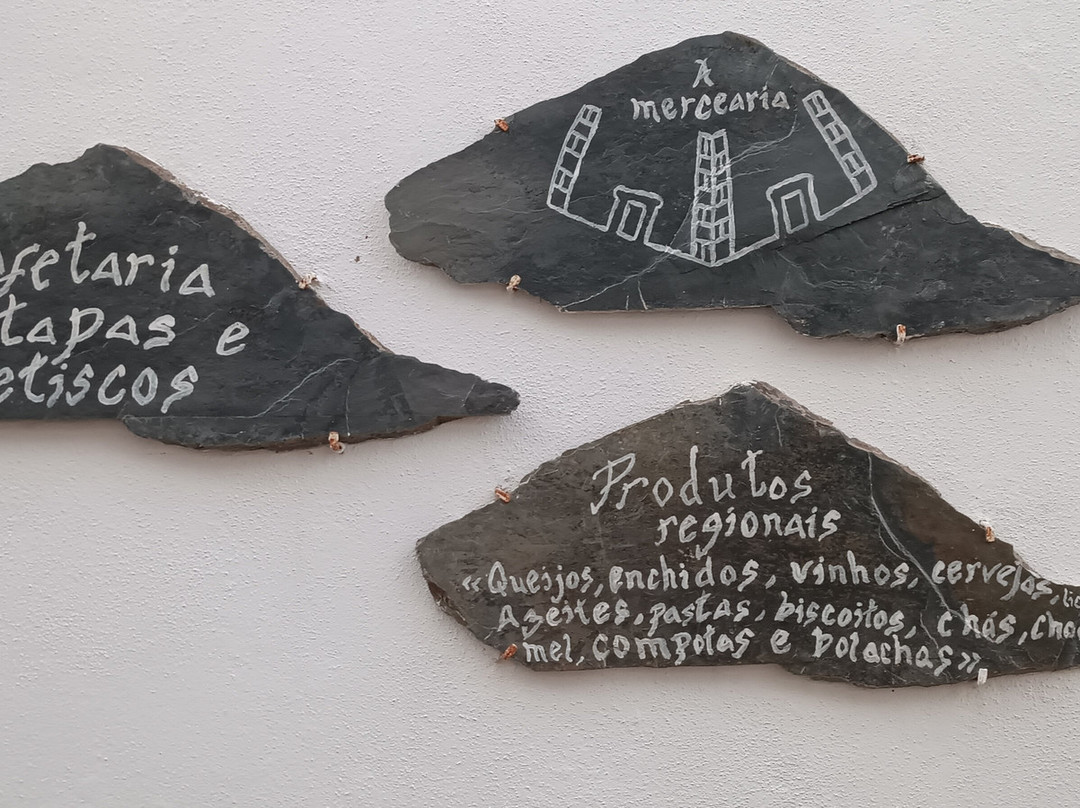 afetaria
tapas e
etiscos
A
mercearia
Produtos
regionais
«Queijos, enchidos, vinhos, cervejas, lic
Azeites, pastas, biscoitos, chás, cho
mel, compotas e bolachas»